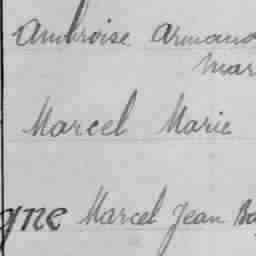 Ambroise Armand
Mar
Marcel Marie
gne Marcel Jean Ba